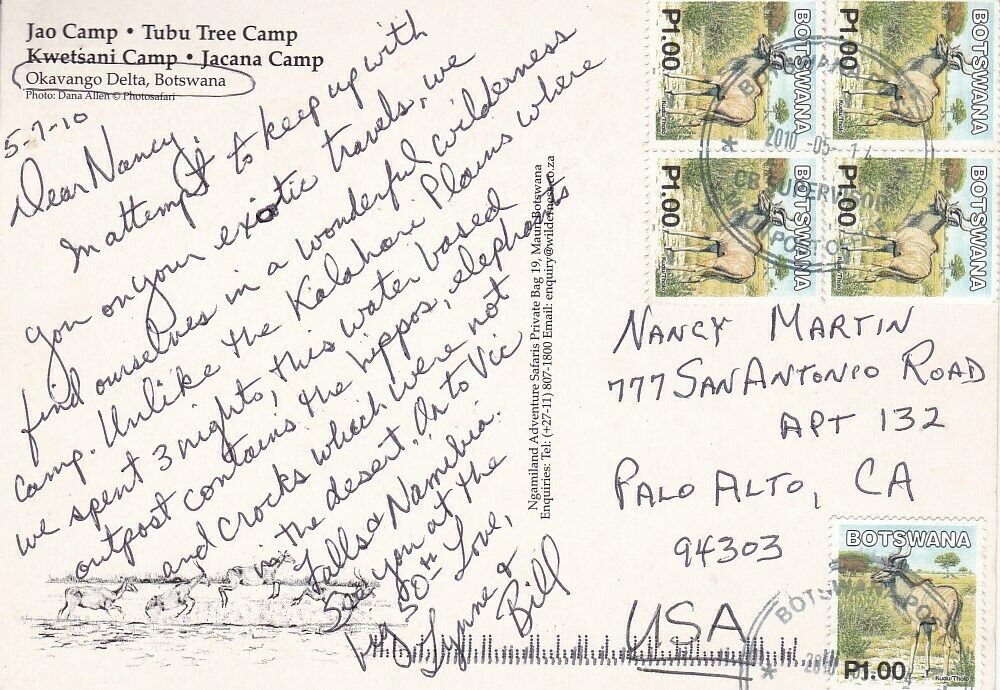 Jao Camp • Tubu Tree Camp
Kwetsani Camp • Jacana Camp
Okavango Delta, Botswana
Photo: Dana Allen © Photosafari
5-7-10
Dear Nancy,
In attempt to keep up with
you on your exotic travels, we
find ourselves in a wonderful wilderness
camp. Unlike the Kalahari Plains where
we spent 3 nights, this water based
outpost contains the hippos, elephants
and crocks which were not
in the desert. On to Vic
Falls & Namibia.
See you at the
big 50th Love,
Lynne &
Bill
Ngamiland Adventure Safaris Private Bag 19, Maun Botswana
Enquiries: Tel: (+27-11) 807-1800 Email: enquiry@wilderness.co.za
P1.00 BOTSWANA Kudu/Tholo
P1.00 BOTSWANA Kudu/Tholo
P1.00 BOTSWANA Kudu/Tholo
P1.00 BOTSWANA Kudu/Tholo
2010 -05- 14
GR SUPERVISOR
NANCY MARTIN
777 SAN ANTONIO ROAD
APT 132
PALO ALTO, CA
94303
USA
BOTSWANA
P1.00 Kudu/Tholo